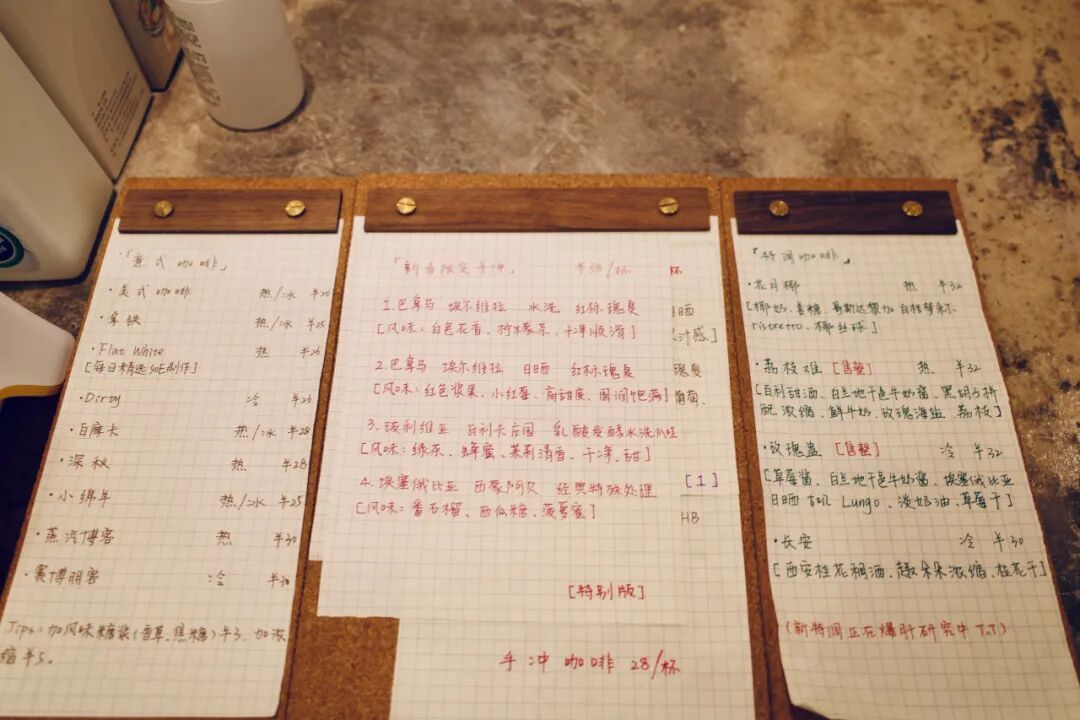 「意式咖啡」
·美式咖啡 热/冰 ¥20
·拿铁 热/冰 ¥25
·Flat White 热 ¥26
[每日精选SOE制作]
·Dirty 冷 ¥26
·白摩卡 热/冰 ¥28
·深秋 热 ¥28
·小绵羊 热/冰 ¥25
·蒸汽博客 热 ¥30
·赛博朋客 冷 ¥30
Tips:加风味糖浆(香草、焦糖)¥3、加浓
缩¥5。
「新春限定手冲」 /杯
1.巴拿马 埃尔维拉 水洗 红标瑰夏
[风味:白色花香、柠檬红茶、干净顺滑]
2.巴拿马 埃尔维拉 日晒 红标瑰夏
[风味:红色浆果、小红莓、高甜度、圆润饱满]
3.玻利维亚 百利卡庄园 乳酸发酵水洗爪哇
[风味:绿茶、蜂蜜、茉莉清香、干净、甜]
4.埃塞俄比亚 西蒙阿贝 经典特殊处理
[风味:番石榴、西瓜糖、菠萝蜜]
杯
日晒
汁感.]
瑰夏
葡萄、
[1]
HB
[特别版]
手冲咖啡 28/杯
「特调咖啡」
·花日椰 热 ¥32
[椰奶、姜糖、哥斯达黎加白
ristretto、椰丝球]
·荔枝难 [售罄] 热 ¥32
[自制甜酒、白兰地干邑牛奶酱、黑胡子拼
配浓缩、鲜牛奶、玫瑰海盐、荔枝]
·玫瑰盅 [售罄] 冷 ¥32
[草莓酱、白兰地干邑牛奶酱、埃塞俄比亚
日晒 Lungo、淡奶油、草莓干]
·长安 冷 ¥30
[西安桂花稠酒、趣朵朵浓缩、桂花干]
(新特调正在爆肝研究中 T.T)